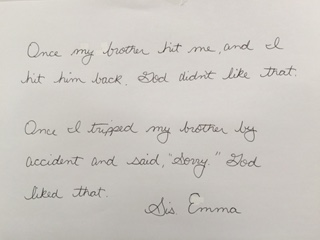 Once my brother hit me, and I
hit him back. God didn't like that.
Once I tripped my brother by
accident and said, "Sorry." God
liked that.
Sis. Emma